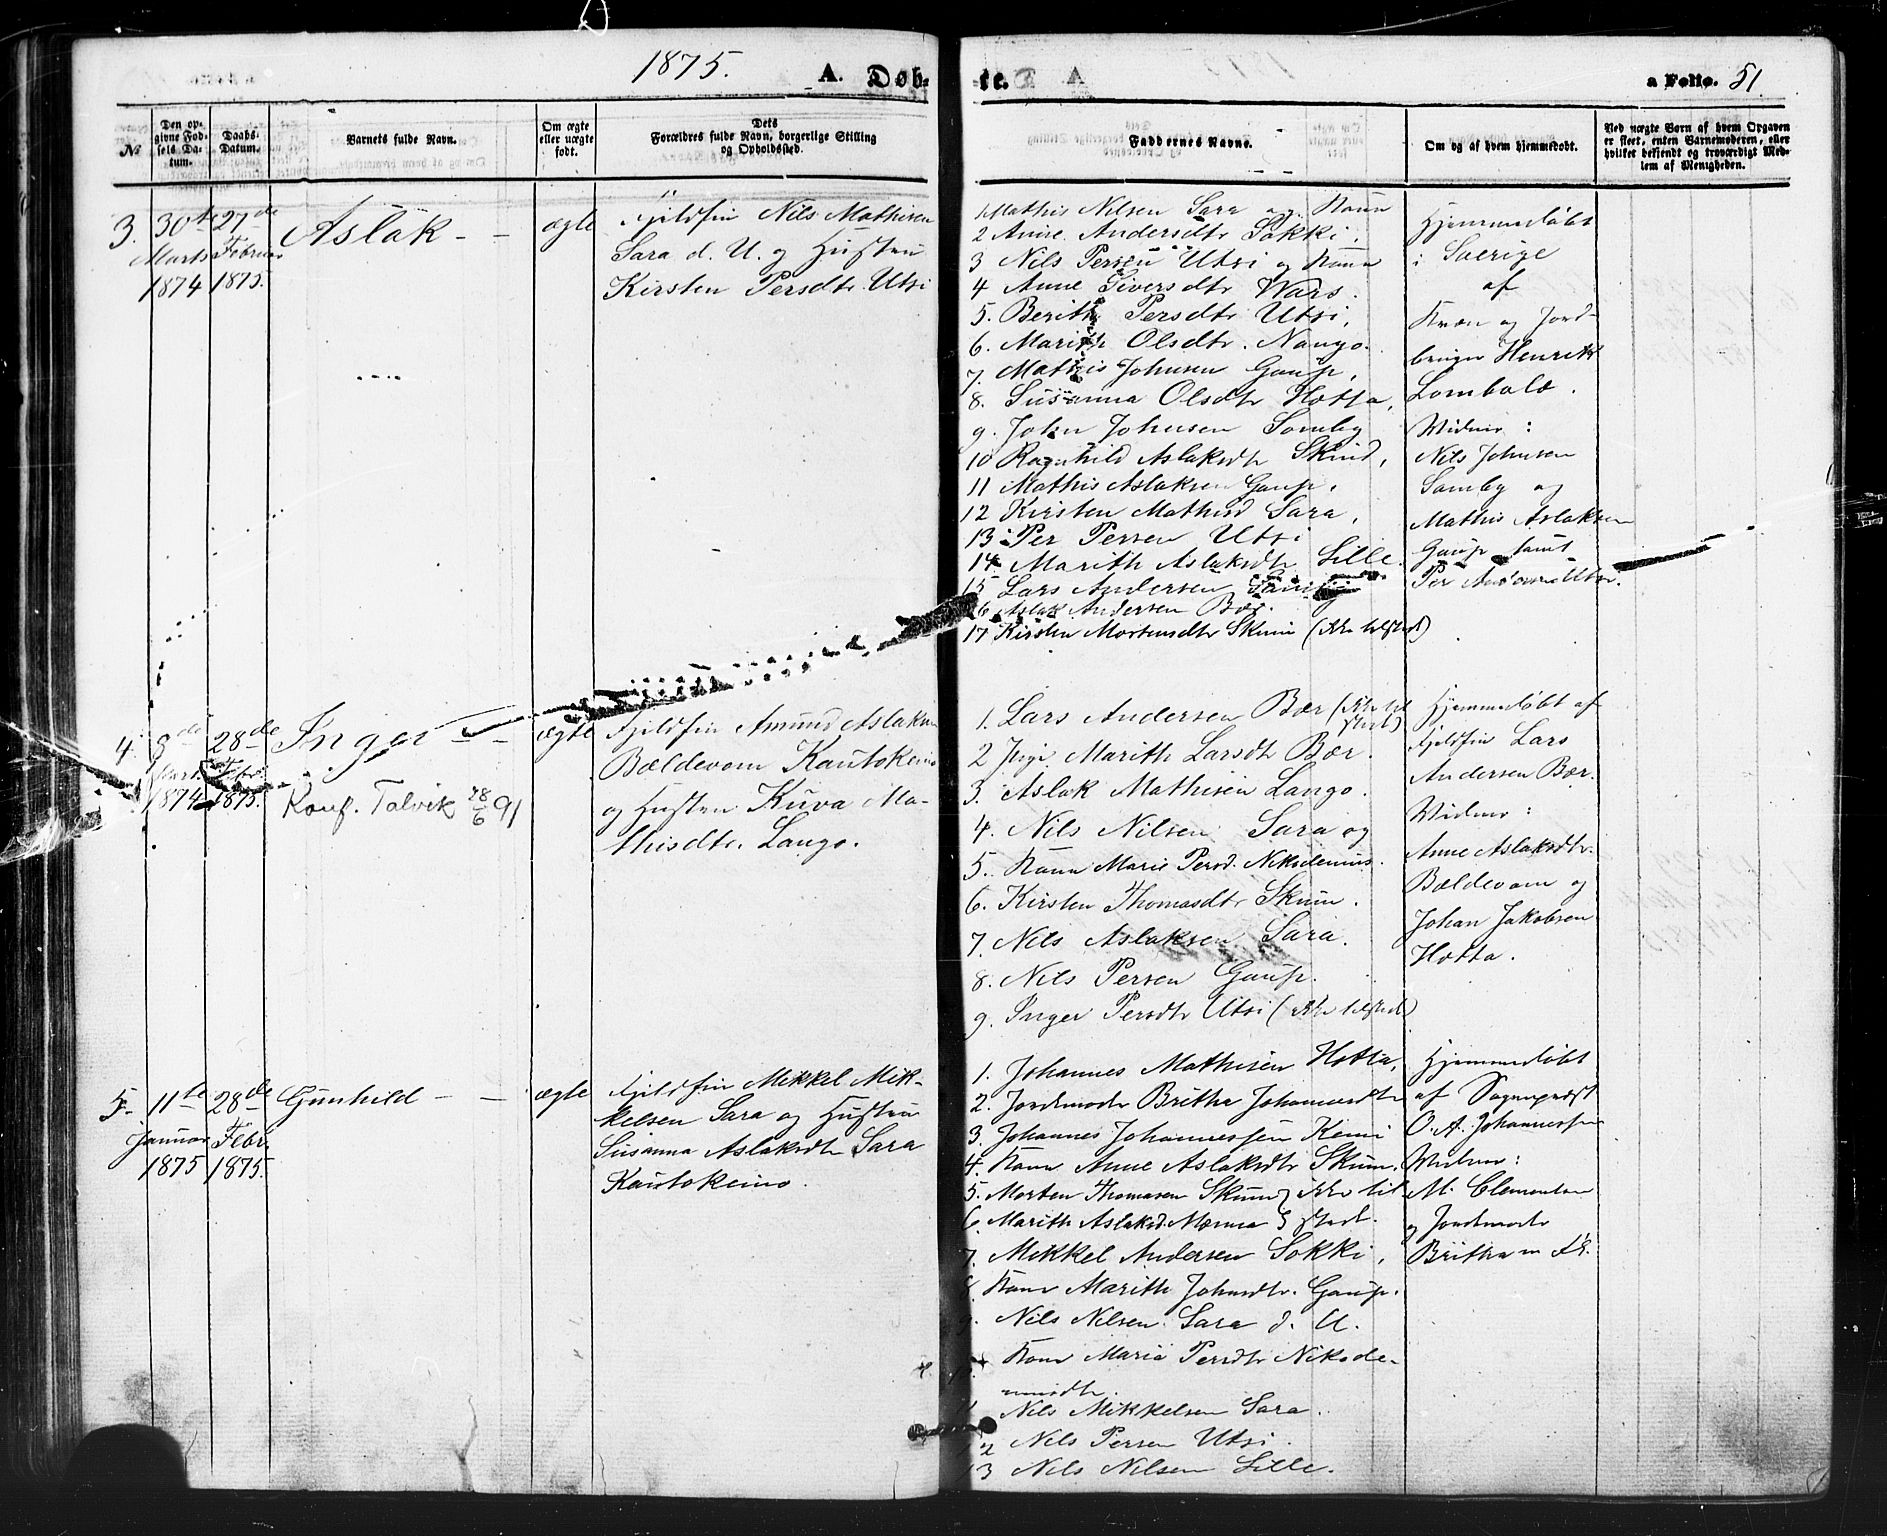 1875.
A. Døb-
te.
a Folio. 51.
№
Den op-
givne Fød-
sels Da-
tum.
Daabs-
Datum.
Barnets fulde Navn.
Om ægte
eller uægte
født.
Dets
Forældres fulde Navn, borgerlige Stilling
og Opholdssted.
Faddernes Navne.
Om og af hvem hjemmedøbt.
Ved uægte Børn af hvem Opgaven
er skeet, enten Barnemoderen, eller
hvilket bekjendt og troværdigt Med-
lem af Menigheden.
3.
30te
Marts
1874
27de
Februar
1875.
Aslak - -
ægte
Fjeldfin Nils Mathisen
Sara d. U. og Hustru
Kirsten Persdtr. Utsi
1 Mathis Nilsen Sara og Kone
2 Anne Andersdtr Sokki,
3 Nils Persen Utsi og Kone
4 Anne Siversdtr Wars.
5. Berith Persdtr Utsi,
6. Marith Olsdtr. Nango.
7. Mathis Johnsen Gaup,
8. Susanna Olsdtr Hætta,
9. John Johnsen Somby
10 Ragnhild Aslaksdtr Skind,
11 Mathis Aslaksen Gaup,
12 Kirsten Mathisd Sara,
13 Per Persen Utsi
14. Marith Aslaksdtr Lille.
15 Lars Andersen
16 Aslak Andersen Bær.
17 Kirsten Mortensdtr Skum (ikke tilstede)
Hjemmedøbt
i Sverige
af
Kvæn og Jord-
bruger Henrik
Lombolo.
Vidner:
Nils Johnsen
Somby og
Mathis Aslaksen
Gaup samt
Per Andersen Utsi.
4.
8de
Marts
1874
28de
Febr.
1875.
Inger - -
Konf. Talvik 28/6 91
ægte
Fjeldfin Amund Aslaksen
Bældevom Kautokeino
og Hustru Kuva Ma-
thisdtr. Lango.
1. Lars Andersen Bær (ikke til
stede)
2 Inge Marith Larsdtr Bær.
3. Aslak Mathisen Lango.
4. Nils Nilsen Sara og
5. Kone Marie Persd. Nikodemus.
6. Kirsten Thomasdtr Skum.
7. Nils Aslaksen Sara.
8. Nils Persen Gaup.
9. Inger Persdtr Utsi (ikke tilstede)
Hjemmedøbt af
Fjeldfin Lars
Andersen Bær.
Vidner:
Anne Aslaksdtr.
Bældevom og
Johan Jakobsen
Hætta.
5.
11te
Januar
1875
28de
Febr.
1875.
Gunhild - -
ægte
Fjeldfin Mikkel Mik-
kelsen Sara og Hustru
Susanna Aslaksdtr Sara
Kautokeino.
1. Johannes Mathisen Hætta,
2. Jordmoder Britha Johannesdtr
3. Johannes Johannessen Kemi
4. Kone Anne Aslaksdtr Skum.
5. Morten Thomasen Skum } ikke til-
6. Marith Aslaksd. Mænna } stede.
7. Mikkel Andersen Sokki,
8. Kone Marith Johnsdtr. Gaup.
9. Nils Nilsen Sara d. U.
10. Kone Maria Persdtr Nikode-
musdtr.
11 Nils Mikkelsen Sara.
12 Nils Persen Utsi.
13 Nils Nilsen Lille.
Hjemmedøbt
af Sognepræst
O. A. Johannessen
Vidner:
M. Clementsen
og Jordmoder
Britha